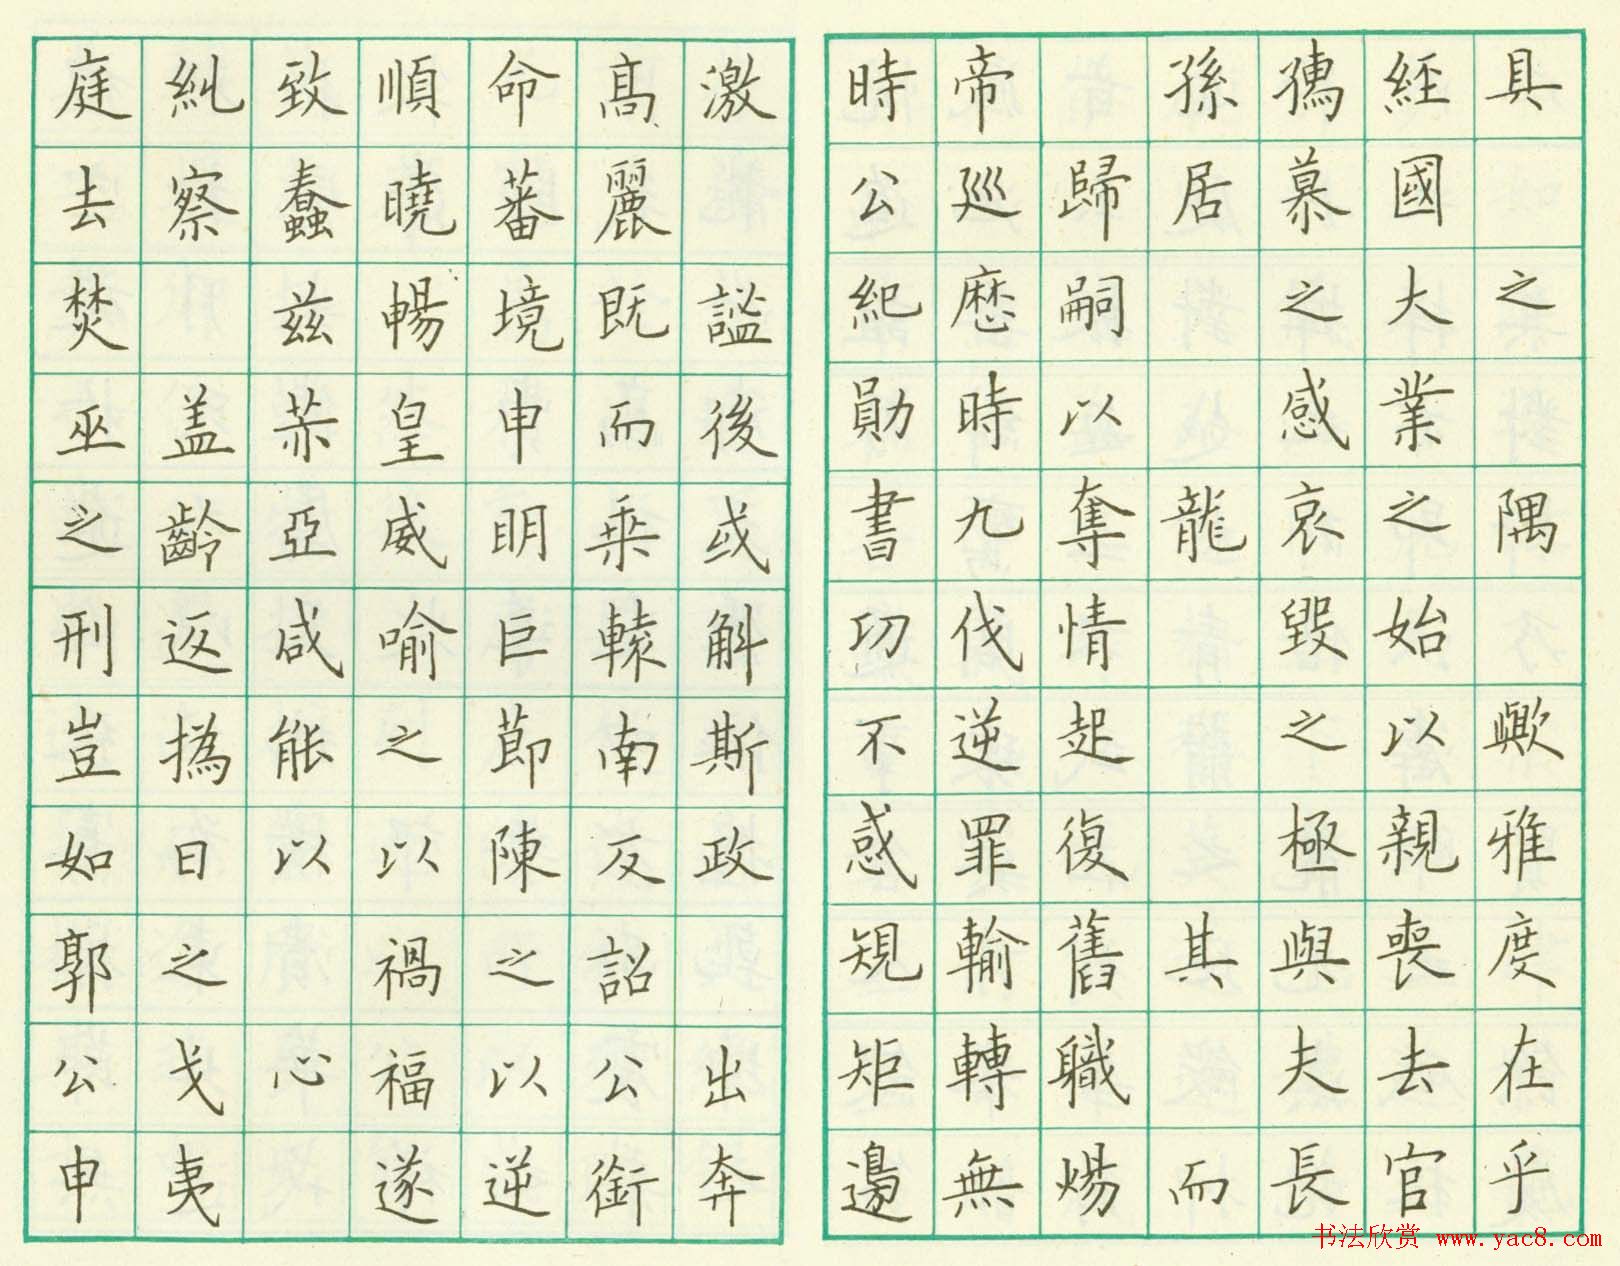 具之隅歟雅度在乎
經國大業之始以親喪去官
孺慕之感哀毀之極與夫長
孫居龍其而
歸嗣以奪情起復舊職煬
帝巡歷時九伐逆罪輸轉無
時公紀勛書功不惑規矩邊
激謐後或斛斯政出奔
高麗既而乗轅南反詔公銜
命蕃境申明巨節陳之以逆
順曉暢皇威喻之以禍福遂
致蠢茲亞咸能以心
糾察盖齡返撝日之戈夷
庭去焚巫之刑豈如郭公申
书法欣赏 www.yac8.com